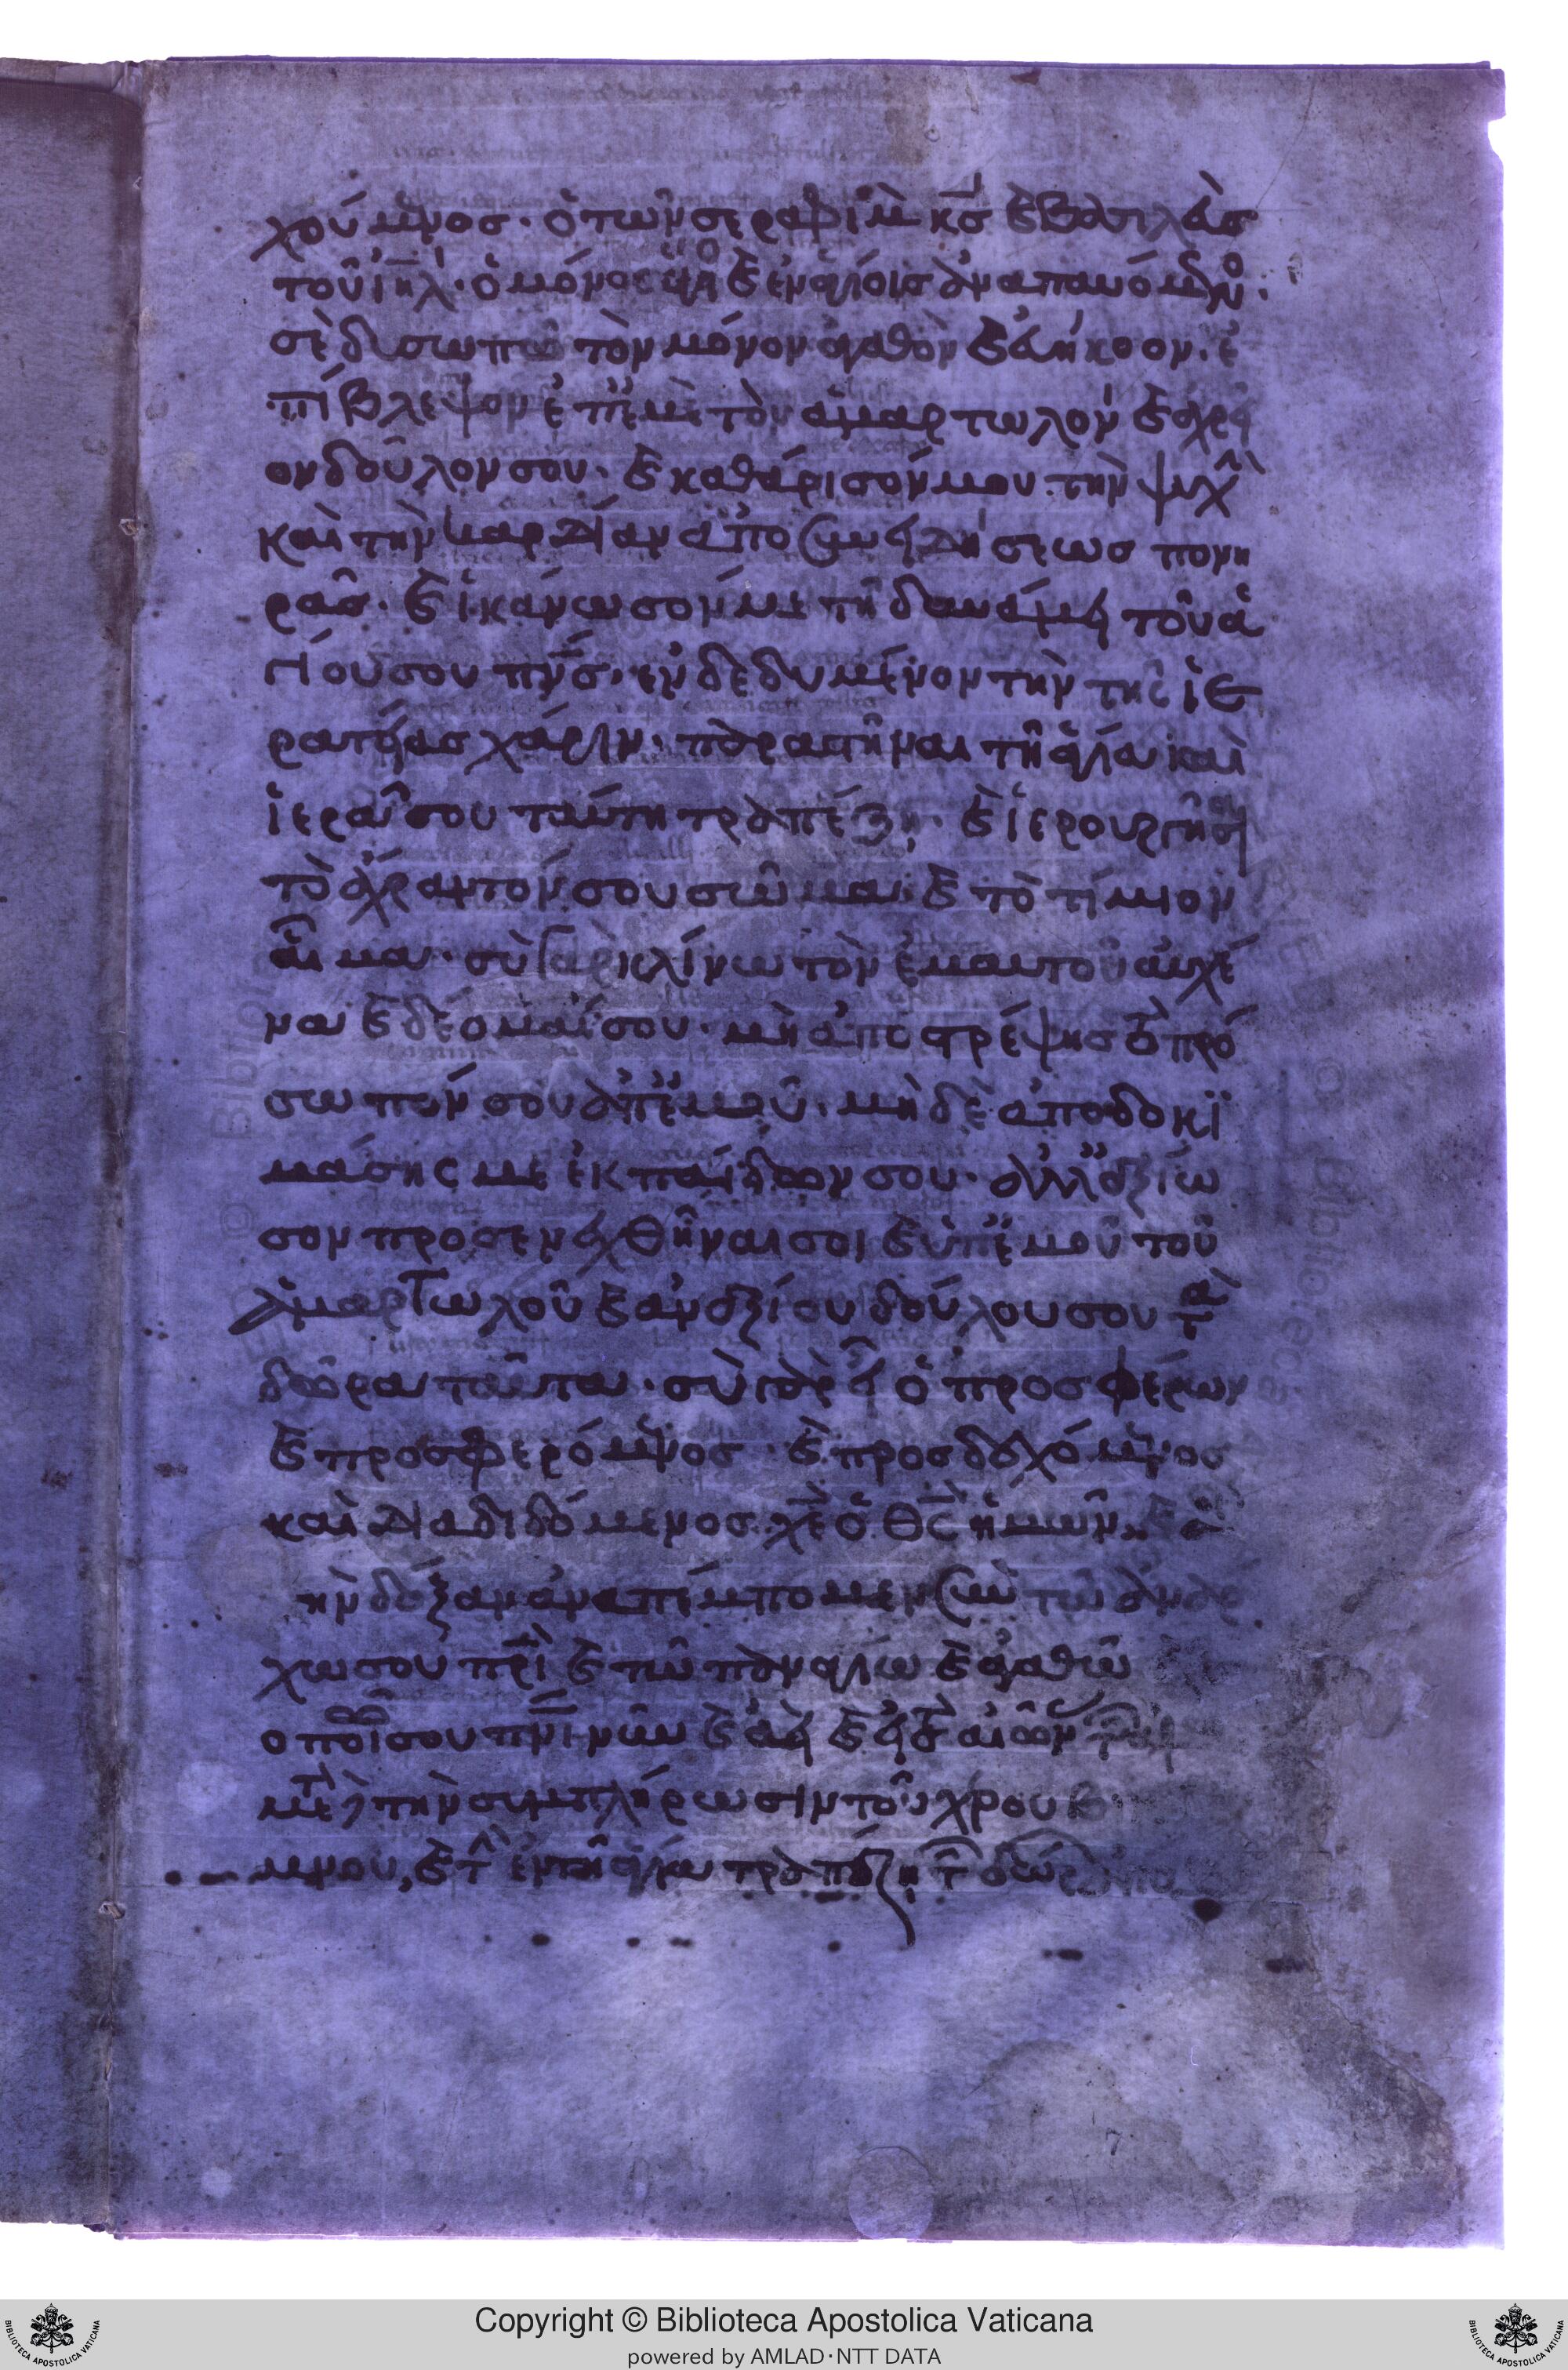 χούμενος· ὁ τῶν σεραφὶμ κ̅ς̅ (καὶ) βασιλεὺς
τοῦ ι̅η̅λ̅· ὁ μόνος ἅγι(ος) (καὶ) ἐν ἁγίοις ἀναπαυόμενο(ς)·
σὲ δυσωπῶ τὸν μόνον ἀγαθὸν (καὶ) εὐήκοον· ἐ
πίβλεψον ἐπ' ἐμὲ τὸν ἁμαρτωλὸν (καὶ) ἀχρεῖ
ον δοῦλον σου· (καὶ) καθάρισόν μου τὴν ψυχ(ὴν)
καὶ τὴν καρδίαν ἀπὸ συνειδήσεως πονη
ρᾶς· (καὶ) ἱκάνωσόν με τῆ δυνάμει τοῦ ἁ
γίου σου π̅ν̅ς̅· ἐνδεδυμένον τὴν τῆς ἱε
ρατείας χάριν· παραστῆναι τῆ ἁγία καὶ
ἱερᾶ σου ταύτη τραπέζη· (καὶ) ἱερουργῆσαι
τὸ ἄχραντόν σου σῶμα· (καὶ) τὸ τίμιον
αἷμα· σοὶ γὰρ κλίνω τὸν ἐμαυτοῦ αὐχέ
να (καὶ) δέομαί σου· μὴ ἀποστρέψης τὸ πρό
σωπόν σου ἀπ' ἐμοῦ· μὴ δὲ ἀποδοκι
μάσης με ἐκ παίδων σου· ἀλλ' ἀξίω
σον προσενεχθῆναι σοι (καὶ) ὑπ' ἐμοῦ τοῦ
ἁμαρτωλοῦ (καὶ) ἀναξίου δούλου σου τὰ
δῶρα ταῦτα· σὺ γὰρ εἶ ὁ προσφέρων
(καὶ) προσφερόμενος· (καὶ) προσδεχόμενος
καὶ διαδιδόμενος χ̅ε̅ ὁ θ̅ς̅ ἡμῶν·
ὴν δόξαν ἀναπέμπομεν σὺν τῶ ἀνάρ
χω σου π̅ρ̅ι̅ (καὶ) τῶ παναγίω (καὶ) ἀγαθῶ
οποιῶ σου π̅ν̅ι̅ νῦν (καὶ) ἀεὶ (καὶ) εἰς τ(οὺς) αἰῶν(ας)
μετ(ὰ) τὴν συμπλήρωσιν τοῦ χερου
μένου, (καὶ) τ(ῶν) ἐν τῆ ἁγία τραπέζη τ(ῶν) δώρων